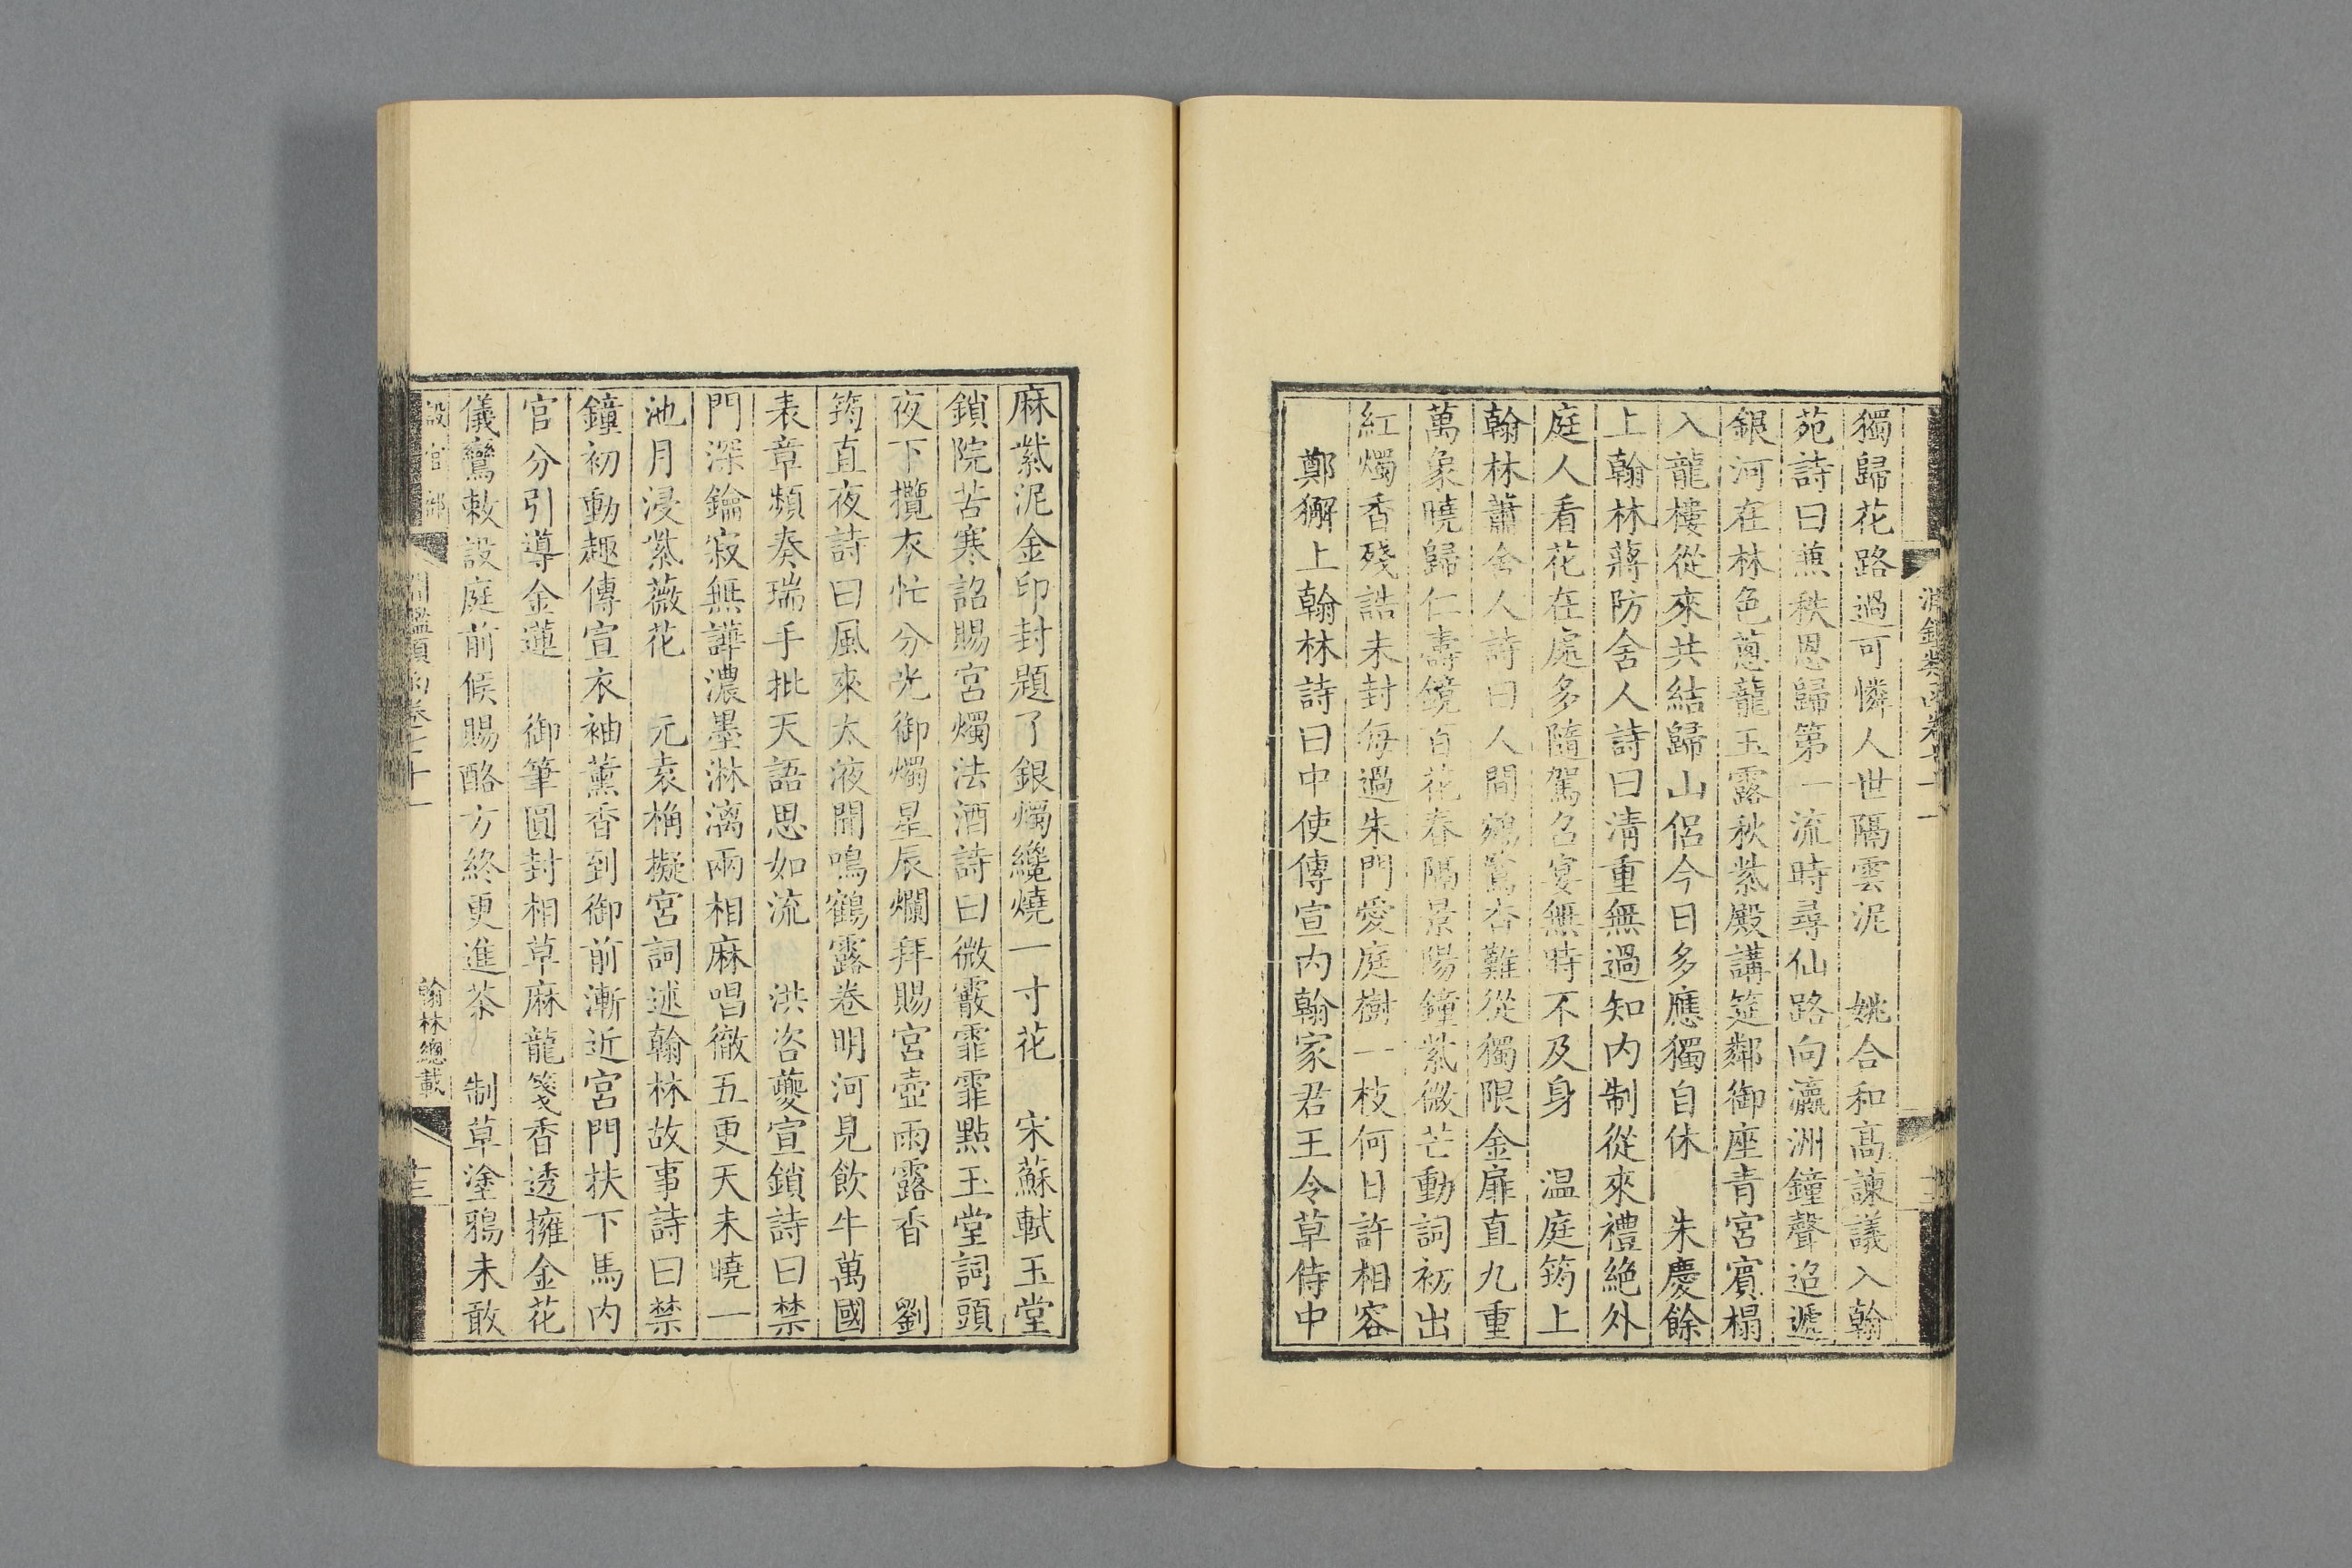 淵鑑類函卷七十一
獨歸花路過可憐人世隔雲泥　姚合和高諫議入翰
苑詩曰兼秩恩歸第一流時尋仙路向瀛洲鐘聲迢遞
銀河在林色蔥蘢玉露秋紫殿講筵鄰御座青宮賓榻
入龍樓從來共結歸山侶今日多應獨自休　朱慶餘
上翰林蔣防舍人詩曰清重無過知内制從來禮絶外
庭人看花在處多隨駕召宴無時不及身　温庭筠上
翰林蕭舍人詩曰人間鵷鷺杳難從獨限金扉直九重
萬象曉歸仁壽鏡百花春隔景陽鐘紫微芒動詞初出
紅燭香殘誥未封每過朱門愛庭樹一枝何日許相容
鄭獬上翰林詩曰中使傳宣内翰家君王令草侍中
麻紫泥金印封題了銀燭纔燒一寸花　宋蘇軾玉堂
鎖院苦寒詔賜宮燭法酒詩曰微霰霏霏點玉堂詞頭
夜下攬衣忙分光御燭星辰爛拜賜宮壺雨露香　劉
筠直夜詩曰風來太液聞鳴鶴露卷明河見飲牛萬國
表章頻奏瑞手批天語思如流　洪咨夔宣鎖詩曰禁
門深鑰寂無譁濃墨淋漓兩相麻唱徹五更天未曉一
池月浸紫薇花　元袁桷擬宮詞述翰林故事詩曰禁
鐘初動趣傳宣衣袖薰香到御前漸近宮門扶下馬内
官分引導金蓮　御筆圓封相草麻龍箋香透擁金花
儀鸞敕設庭前候賜酪方終更進茶　制草塗鴉未敢
設官部　淵鑑類函卷七十一　翰林總載